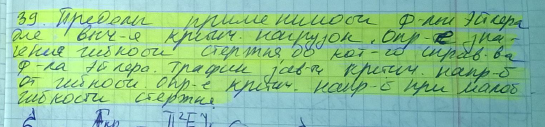 39. Пределы применимости ф-лы Эйлера
для выч-я критич. нагрузок. опр-е зна-
чения гибкости стержня до кот-го справ-ва
ф-ла Эйлера. График зав-ти критич. напр-й
от гибкости. опр-е критич. напр-й при малой
гибкости стержня.